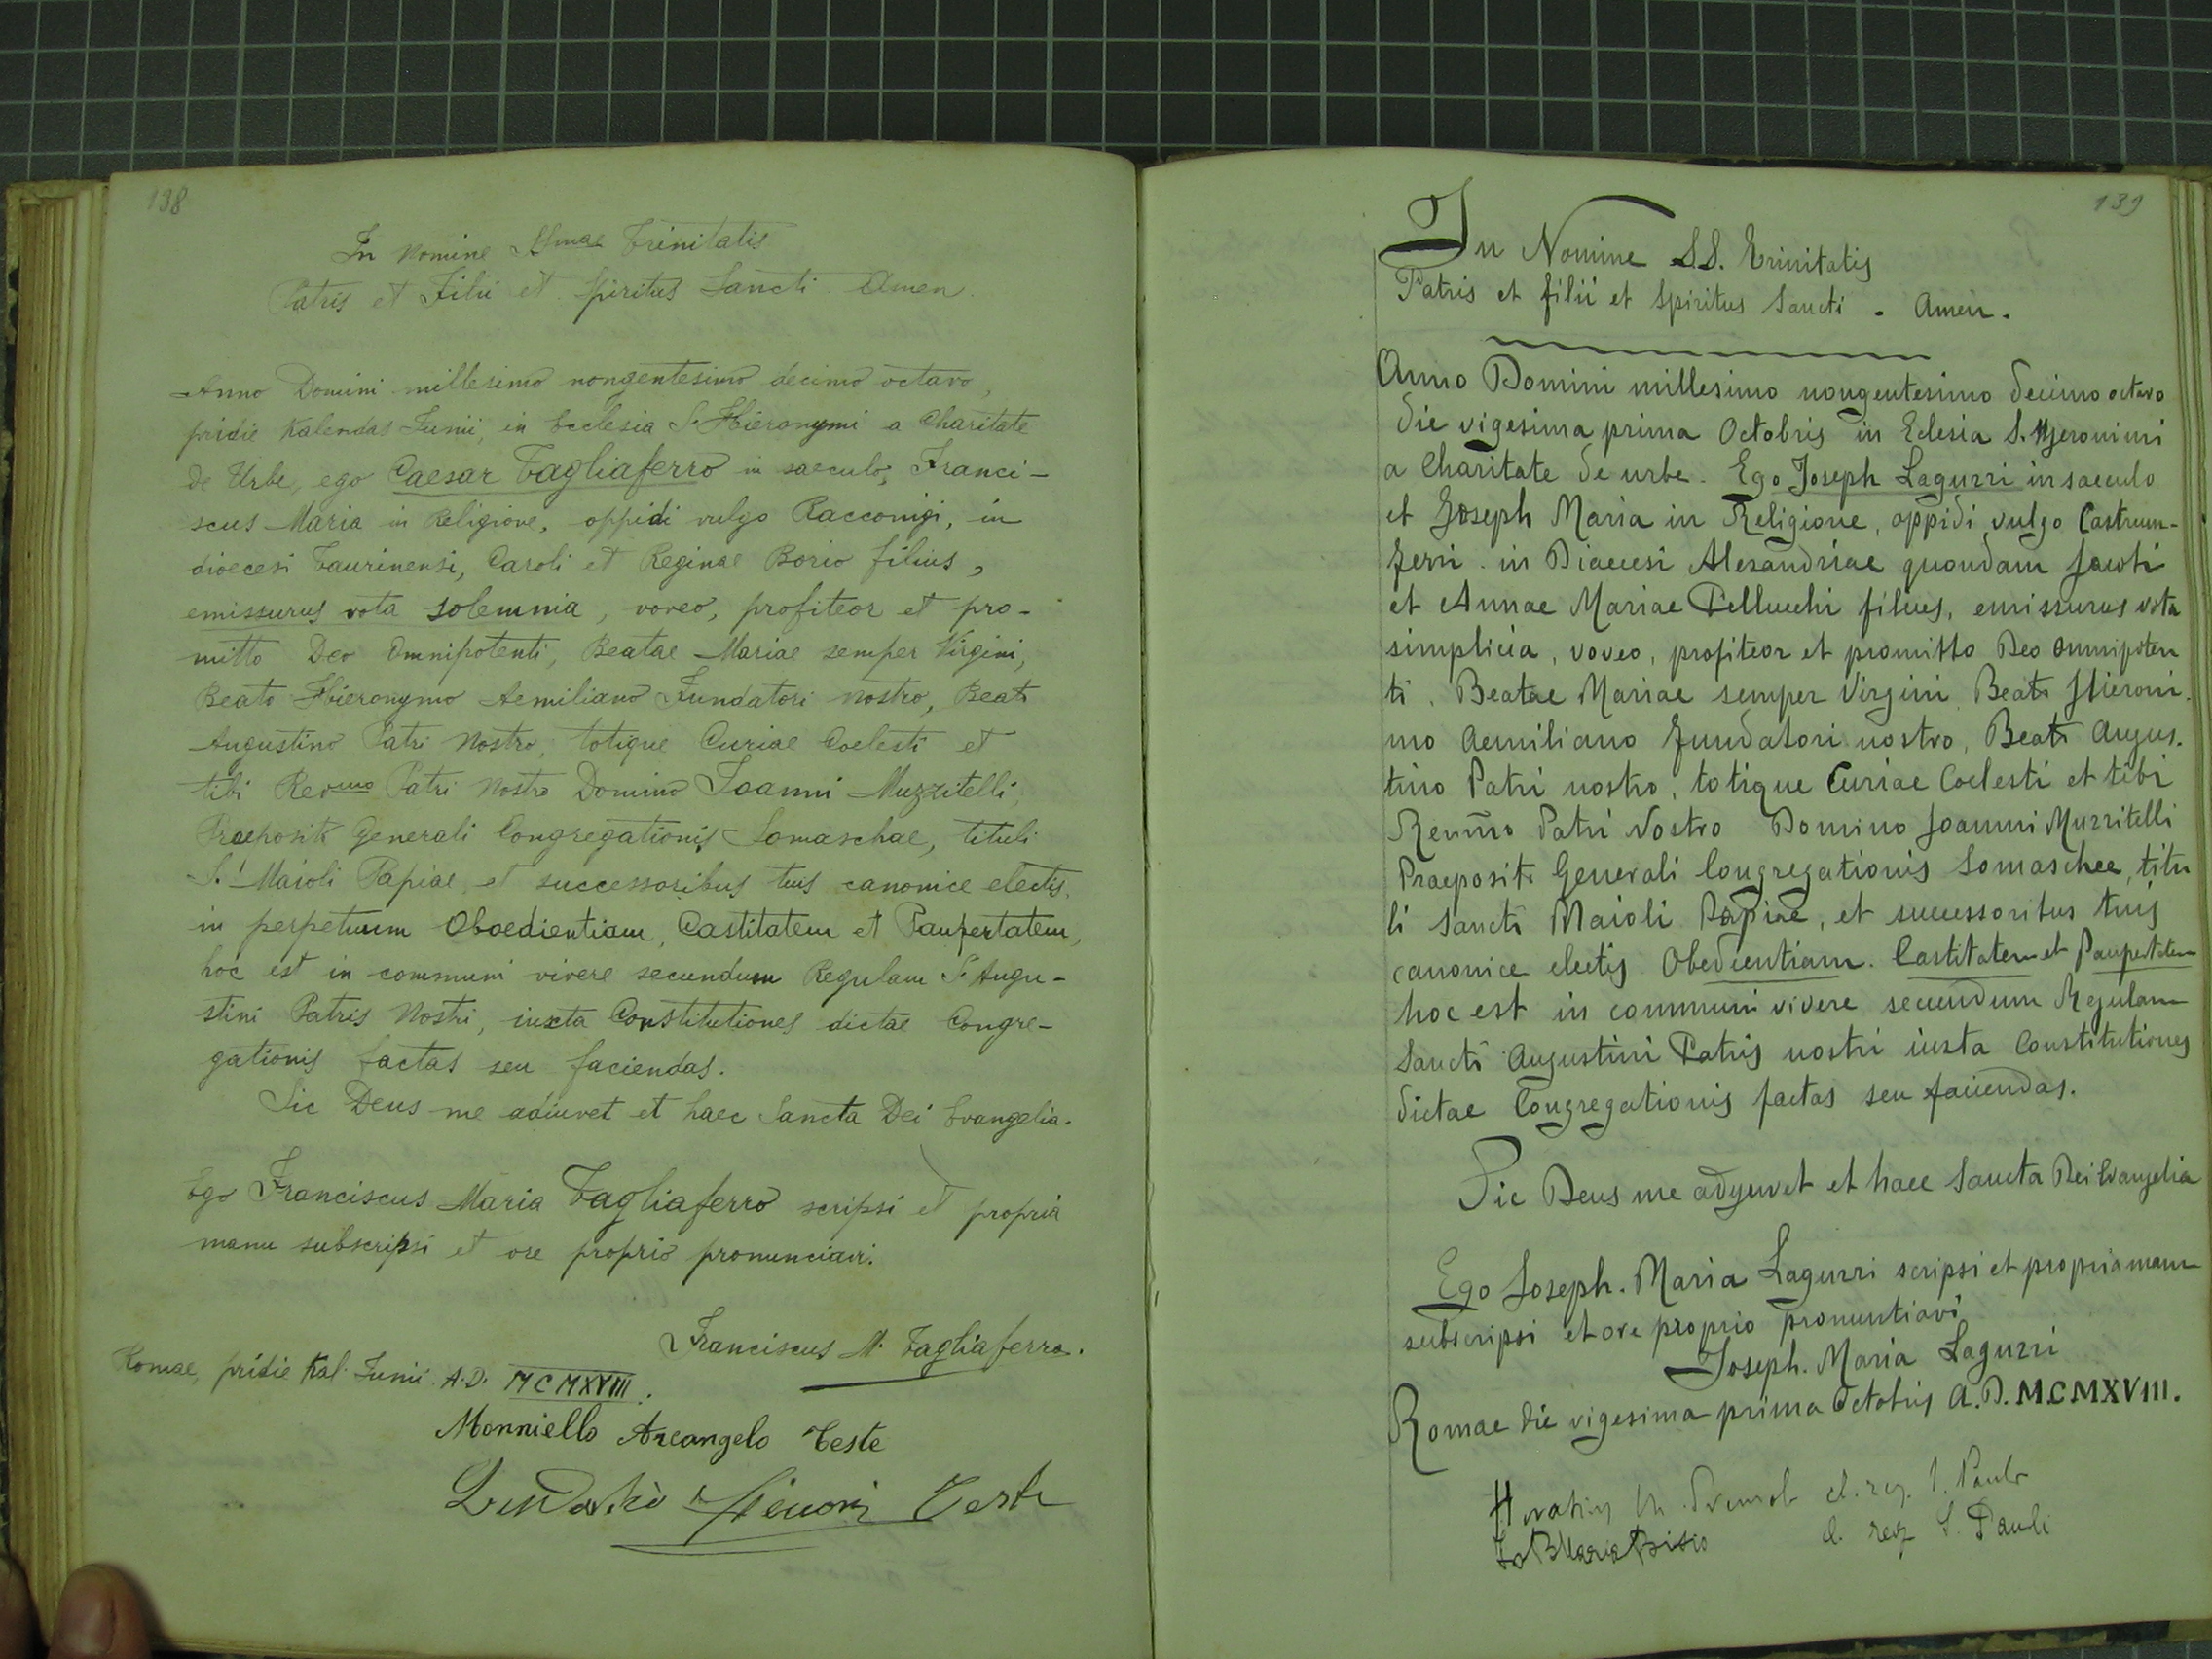 138
In Nomine SSmae Trinitatis
Patris et Filii et Spiritus Sancti Amen.
Anno Domini millesimo nongentesimo decimo octavo,
pridie Kalendas Iunii, in Ecclesia S. Hieronymi a Charitate
de Urbe, ego Caesar Tagliaferro in saeculo, Franci-
scus Maria in Religione, oppidi vulgo Racconigi, in
dioecesi Taurinensi, Caroli et Reginae Borio filius,
emissurus vota solemnia, voveo, profiteor et pro-
mitto Deo Omnipotenti, Beatae Mariae semper Virgini,
Beato Hieronymo Aemiliano Fundatori nostro, Beato
Augustino Patri Nostro, totique Curiae Coelesti et
tibi Revmo Patri Nostro Domino Ioanni Muzzitelli,
Praeposito Generali Congregationis Somaschae, tituli
S.ⁱ Maioli Papiae, et successoribus tuis canonice electis,
in perpetuum Oboedientiam, Castitatem et Paupertatem,
hoc est in communi vivere secundum Regulam S. Augu-
stini Patris Nostri, iuxta Constitutiones dictae Congre-
gationis factas seu faciendas.
Sic Deus me adiuvet et haec Sancta Dei Evangelia.
Ego Franciscus Maria Tagliaferro scripsi et propria
manu subscripsi et ore proprio pronunciavi.
Franciscus M. Tagliaferro.
Romae, pridie Kal. Iunii A.D. MCMXVIII.
Monniello Arcangelo Teste
Teste
139
In Nomine S.S. Trinitatis
Patris et filii et Spiritus Sancti. Amen.
Anno Domini millesimo nongentesimo decimo octavo
die vigesima prima Octobris in Eclesia S. Hjeronimi
a Charitate de urbe. Ego Joseph Laguzzi in saeculo
et Joseph Maria in Religione, oppidi vulgo Castrum-
ferri. in Diaecesi Alexandriae quondam Jacobi
et Annae Mariae Pellucchi filius, emissurus vota
simplicia, voveo, profiteor et promitto Deo Omnipoten
ti. Beatae Mariae semper Virgini, Beato Hieroni.
mo Aemiliano fundatori nostro, Beato Augus.
tino Patri nostro, totique Curiae Coelesti et tibi
Remo Patri Nostro Domino Joanni Muzzitelli
Praeposito Generali Congregationis Somaschee, titu
li Sancti Maioli Papiae, et successoribus tuis
canonice electis Obedientiam. Castitatem et Paupertatem
hoc est in communi vivere secundum Regulam
Sancti Augustini Patris nostri iuxta Constitutiones
dictae Congregationis factas seu faciendas.
Sic Deus me adyuvet et haec Sancta Dei Evangelia
Ego Joseph. Maria Laguzzi scripsi et propria manu
subscripsi et ore proprio pronuntiavi
Joseph. Maria Laguzzi
Romae die vigesima prima Octobris A.D. M.C.MXVIII.
cl. reg. S. Pauli
cl. reg. S. Pauli